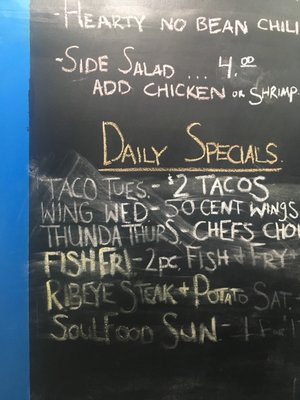 -HEARTY NO BEAN CHILI
-SIDE SALAD ... 4.00
ADD CHICKEN OR SHRIMP
DAILY SPECIALS
TACO TUES. - $2 TACOS
WING WED - 50 CENT WINGS
THUNDA THURS. - CHEFS CHOI
FISH FRI - 2PC. FISH & FRY
RIBEYE STEAK + POTATO SAT-
SOULFOOD SUN -